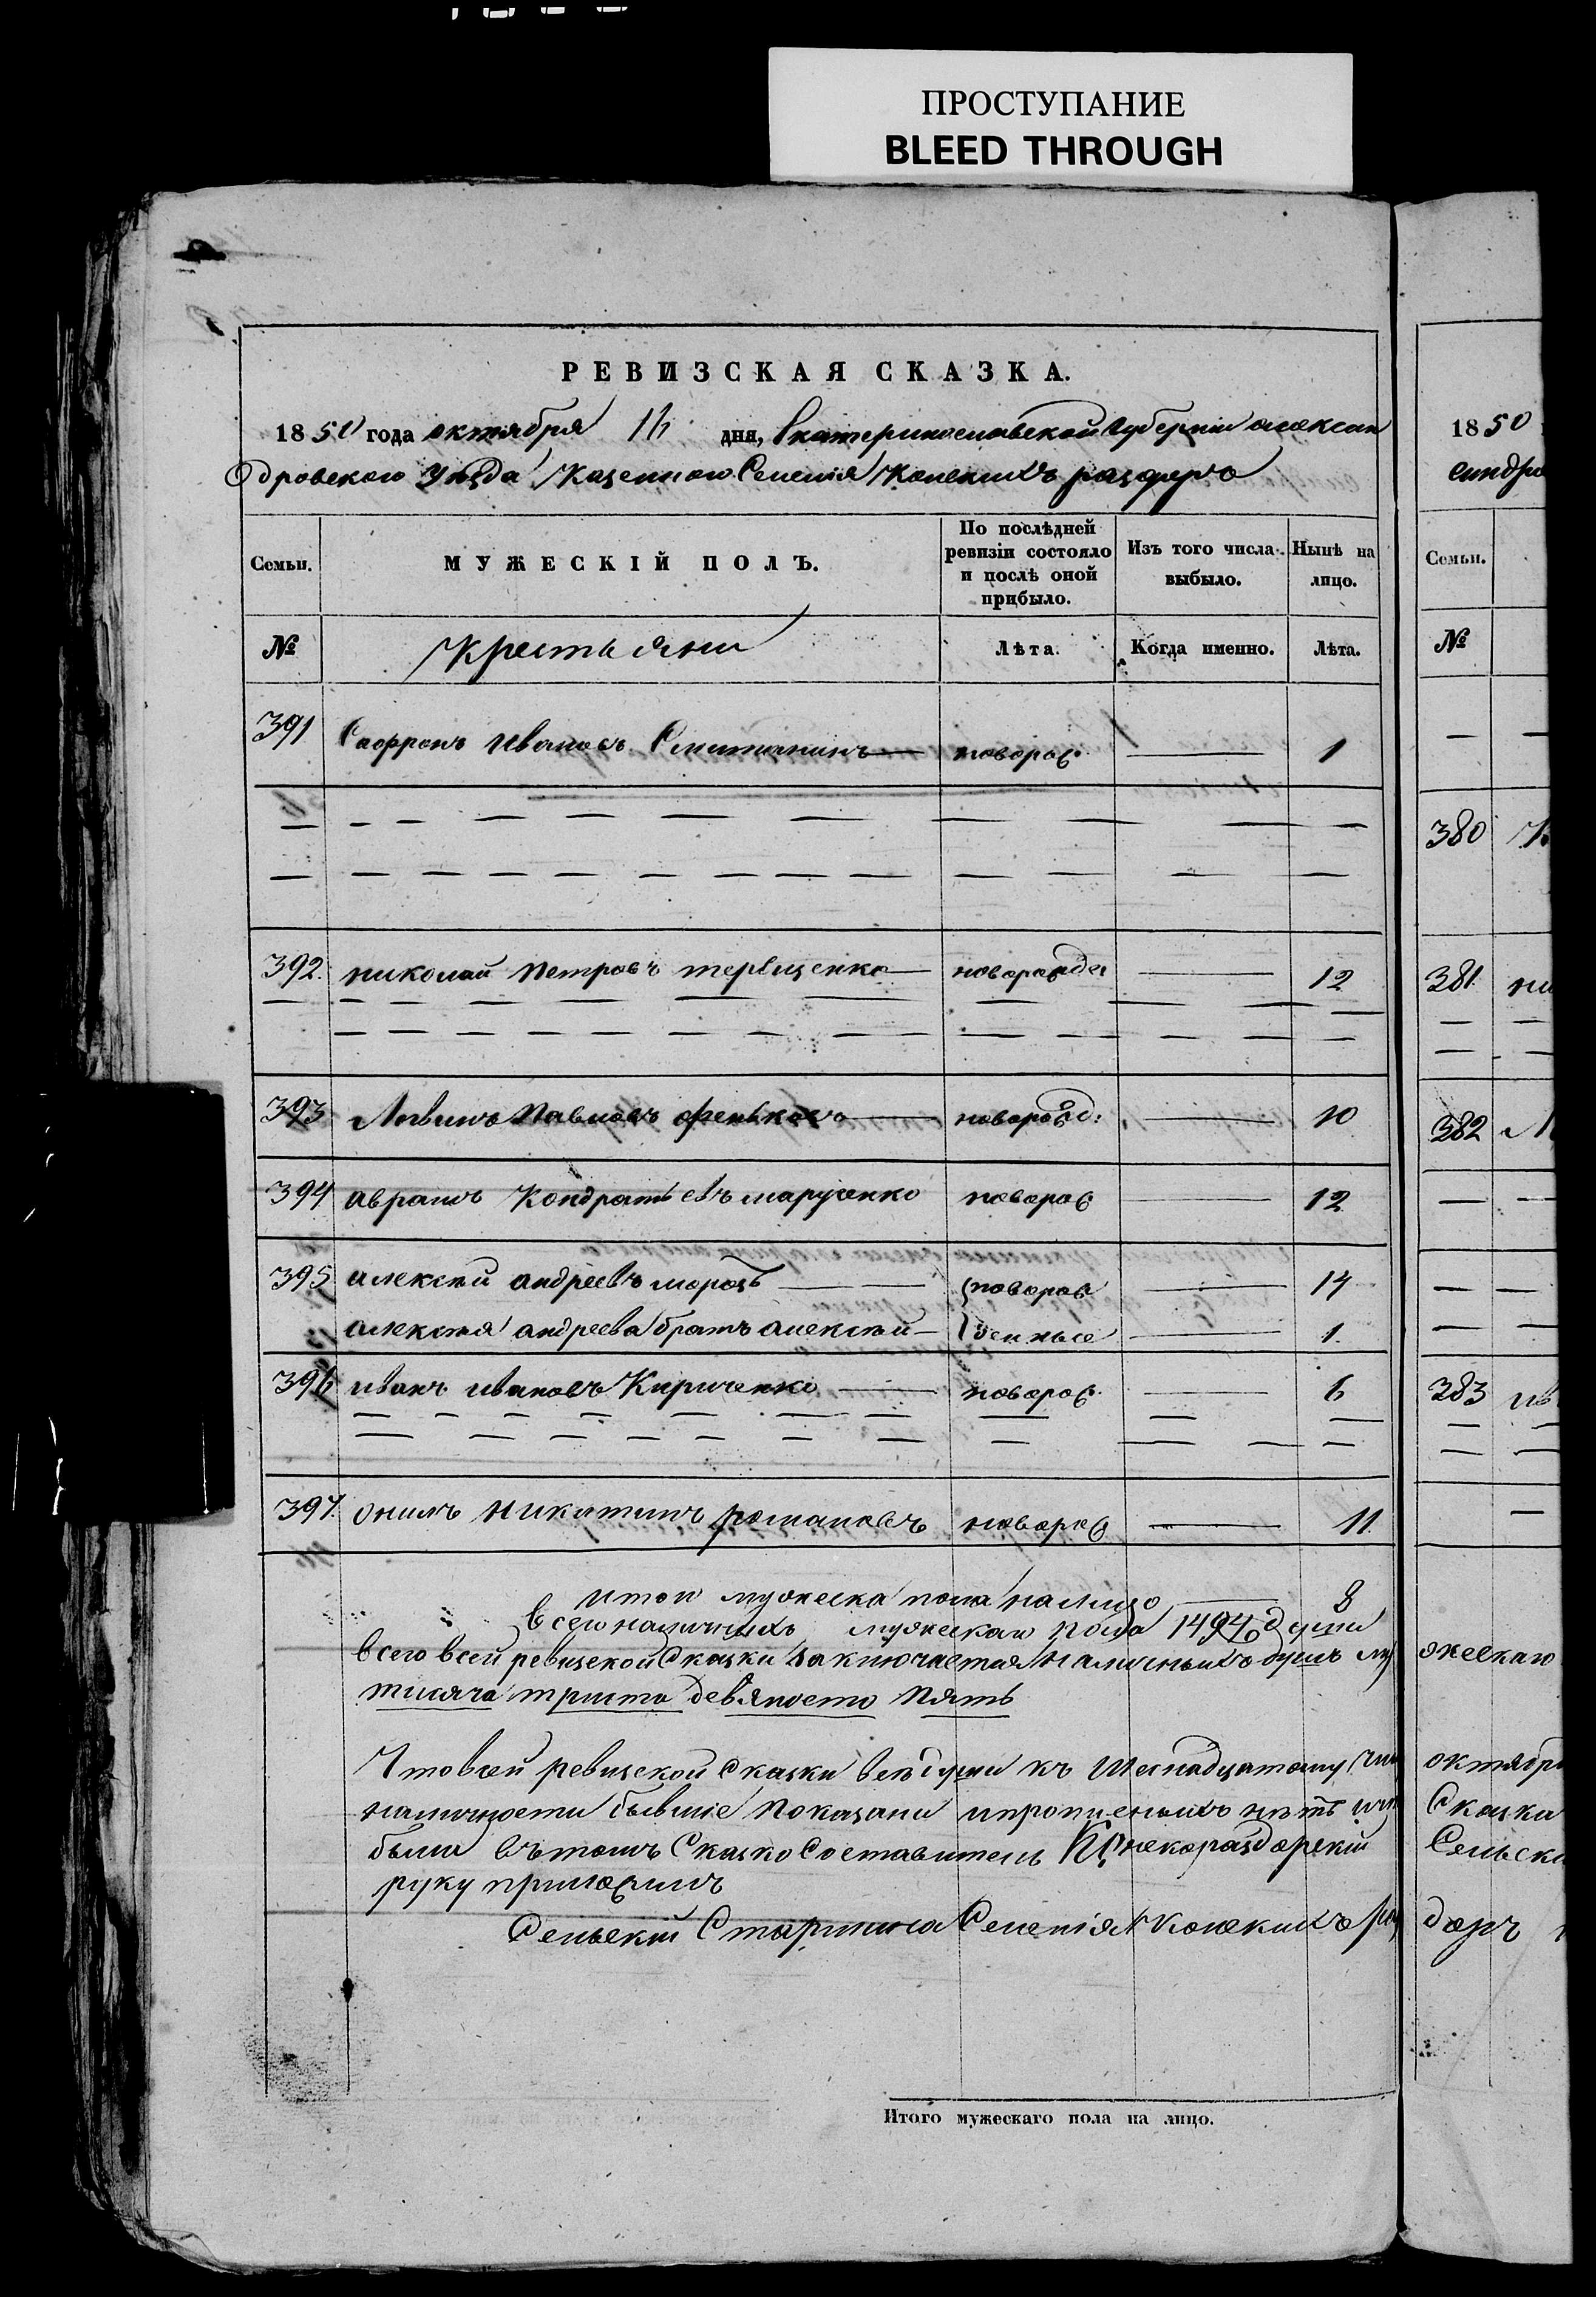 ПРОСТУПАНИЕ
BLEED THROUGH
РЕВИЗСКАЯ СКАЗКА.
1850 года октября 16 дня, Екатеринославской Губернiи алексан
дровского Уѣзда Казенного Селенiя Конскихъ раздоръ
Семьи.
МУЖЕСКIЙ ПОЛЪ.
По послѣдней ревизiи состояло и послѣ оной прибыло.
Изъ того числа выбыло.
Нынѣ на лицо.
№ Крестьяни Лѣта. Когда именно. Лѣта.
391 Сафронъ Ивановъ новорож. 1
392. николай Петровъ терещенко новорожде 12
393 Логвинъ Павловъ феньковъ новорожд: 10
394 аврамъ Кондратьевъ марченко новорож 12
395 алексѣй андреевъ морозъ новорож 14
алексѣя андреева братъ алексѣй денные 1.
396 иванъ ивановъ Кириченко новорож. 6
397. Никитинъ романовъ новорож 11.
итого мужеска пола налицо 8
всего наличныхъ мужескаго пола души
всего всей ревизской Сказки заключается наличныхъ душъ му
тисяча триста девяносто пять
Что в сей ревизской Сказки всѣ души къ Шеснадцатому
наличности бывшiе показани и пропиеныхъ нѣтъ
были въ томъ Сказко Составитель Конскораздорскiй
руку приложилъ
Сельскiй Старшина Селенiя Конскихъ раз
Итого мужескаго пола на лицо.
1850
Семьи.
№
380
381. ни
382
383
жескаго
октябр
Сказки
Сельски
доръ